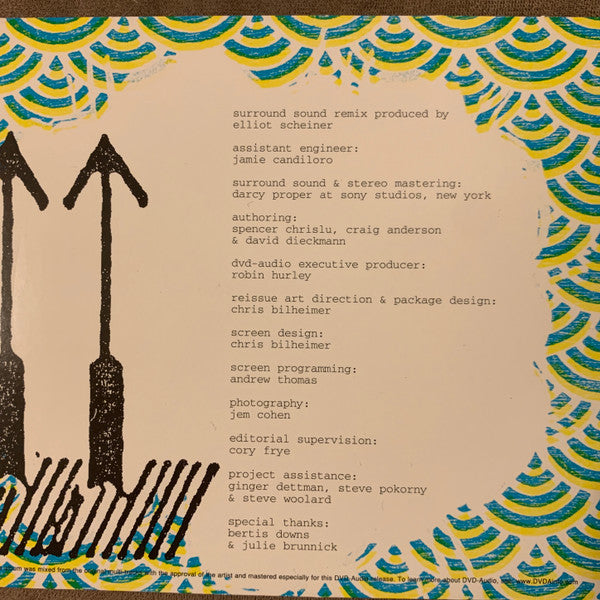 surround sound remix produced by
elliot scheiner
assistant engineer:
jamie candiloro
surround sound & stereo mastering:
darcy proper at sony studios, new york
authoring:
spencer chrislu, craig anderson
& david dieckmann
dvd-audio executive producer:
robin hurley
reissue art direction & package design:
chris bilheimer
screen design:
chris bilheimer
screen programming:
andrew thomas
photography:
jem cohen
editorial supervision:
cory frye
project assistance:
ginger dettman, steve pokorny
& steve woolard
special thanks:
bertis downs
& julie brunnick
was mixed from the multi-tracks with the approval of the artist and mastered especially for this DVD-Audio release. To learn more about DVD-Audio, visit www.DVDAinfo.com